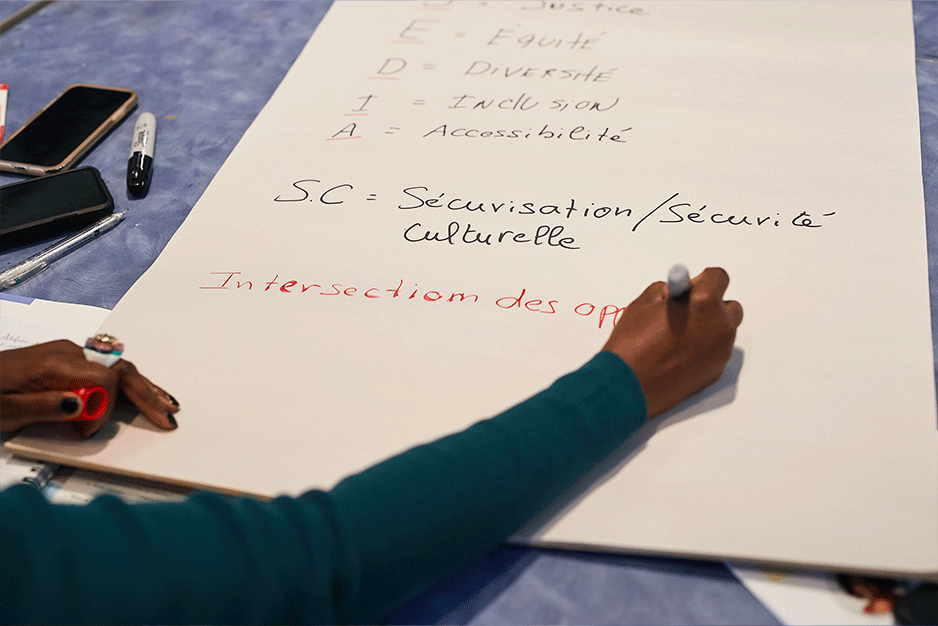 J = Justice
E = Équité
D = Diversité
I = Inclusion
A = Accessibilité
S.C = Sécurisation/Sécurité
culturelle
Intersection des opp